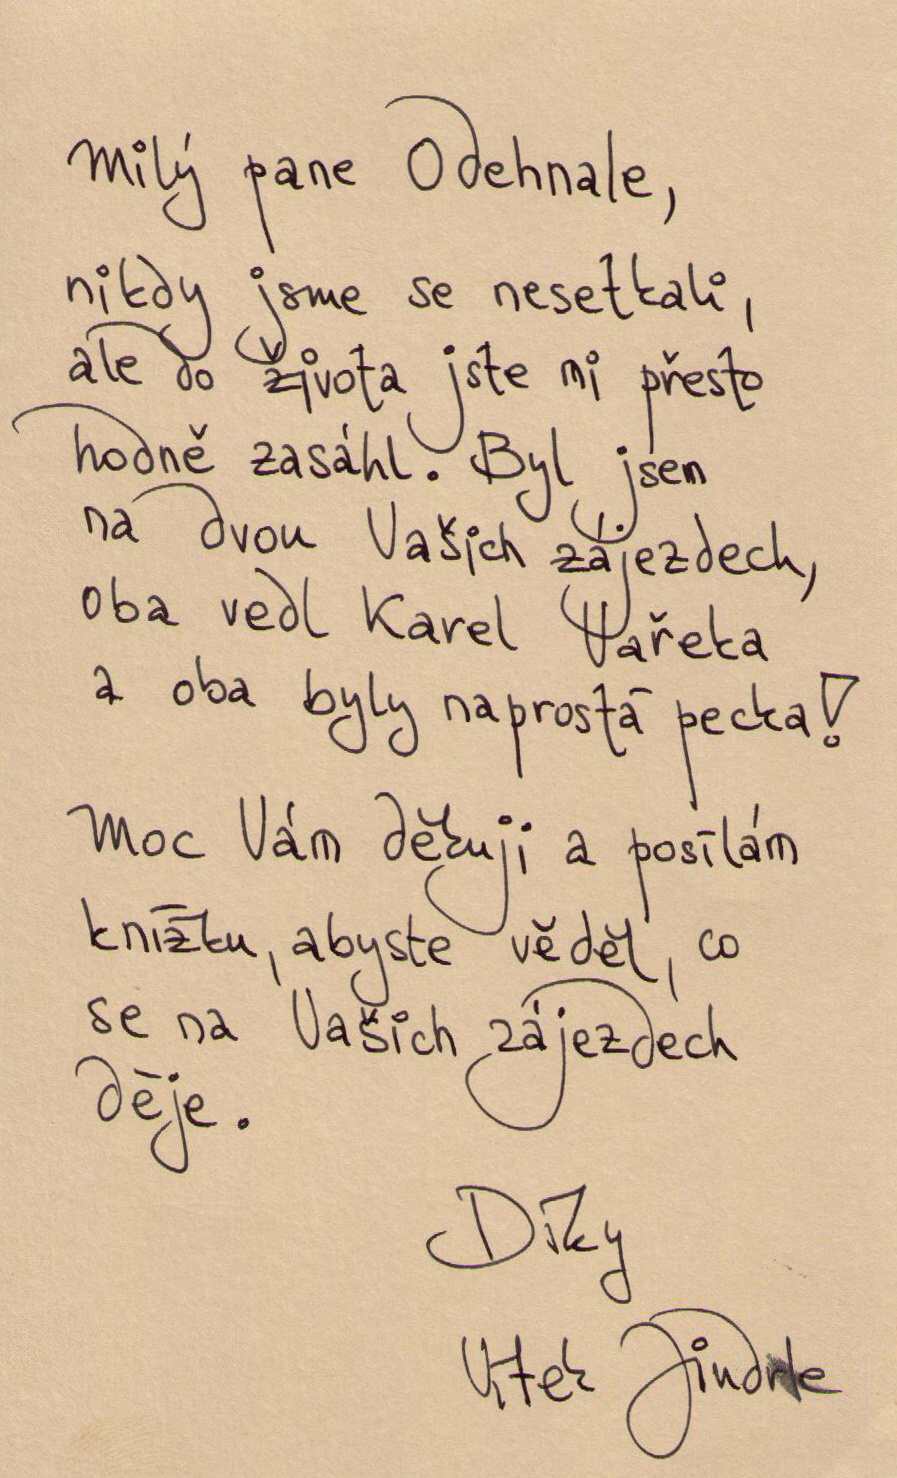 Milý pane Odehnale,
nikdy jsme se nesetkali,
ale do života jste mi přesto
hodně zasáhl. Byl jsem
na dvou Vašich zájezdech,
oba vedl Karel Vařeka
a oba byly naprostá pecka!
Moc Vám děkuji a posílám
knížku, abyste věděl, co
se na Vašich zájezdech
děje.
Díky
Vítek Jindrle